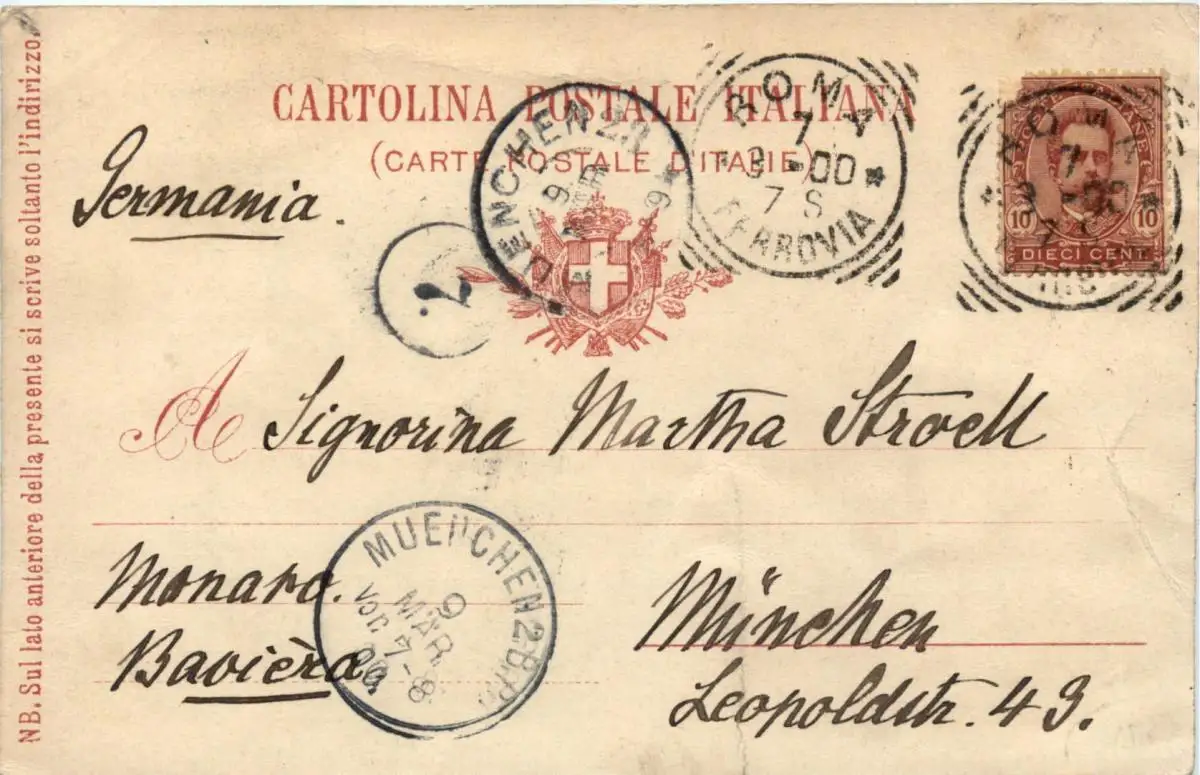 CARTOLINA POSTALE ITALIANA
(CARTE POSTALE D'ITALIE)
NB. Sul lato anteriore della presente si scrive soltanto l'indirizzo.
ROMA
7
3 - 00
7 S
FERROVIA
ROMA
7
3 - 00
7 S
POSTE ITALIANE
10 10
DIECI CENT
MUENCHEN
9
MAR
Germania.
7
A Signorina Martha Stroell
MUENCHEN 2 B.P.
9
MAR
VOR 7-8
00
Monaco.
Bavièra
München
Leopoldstr. 43.